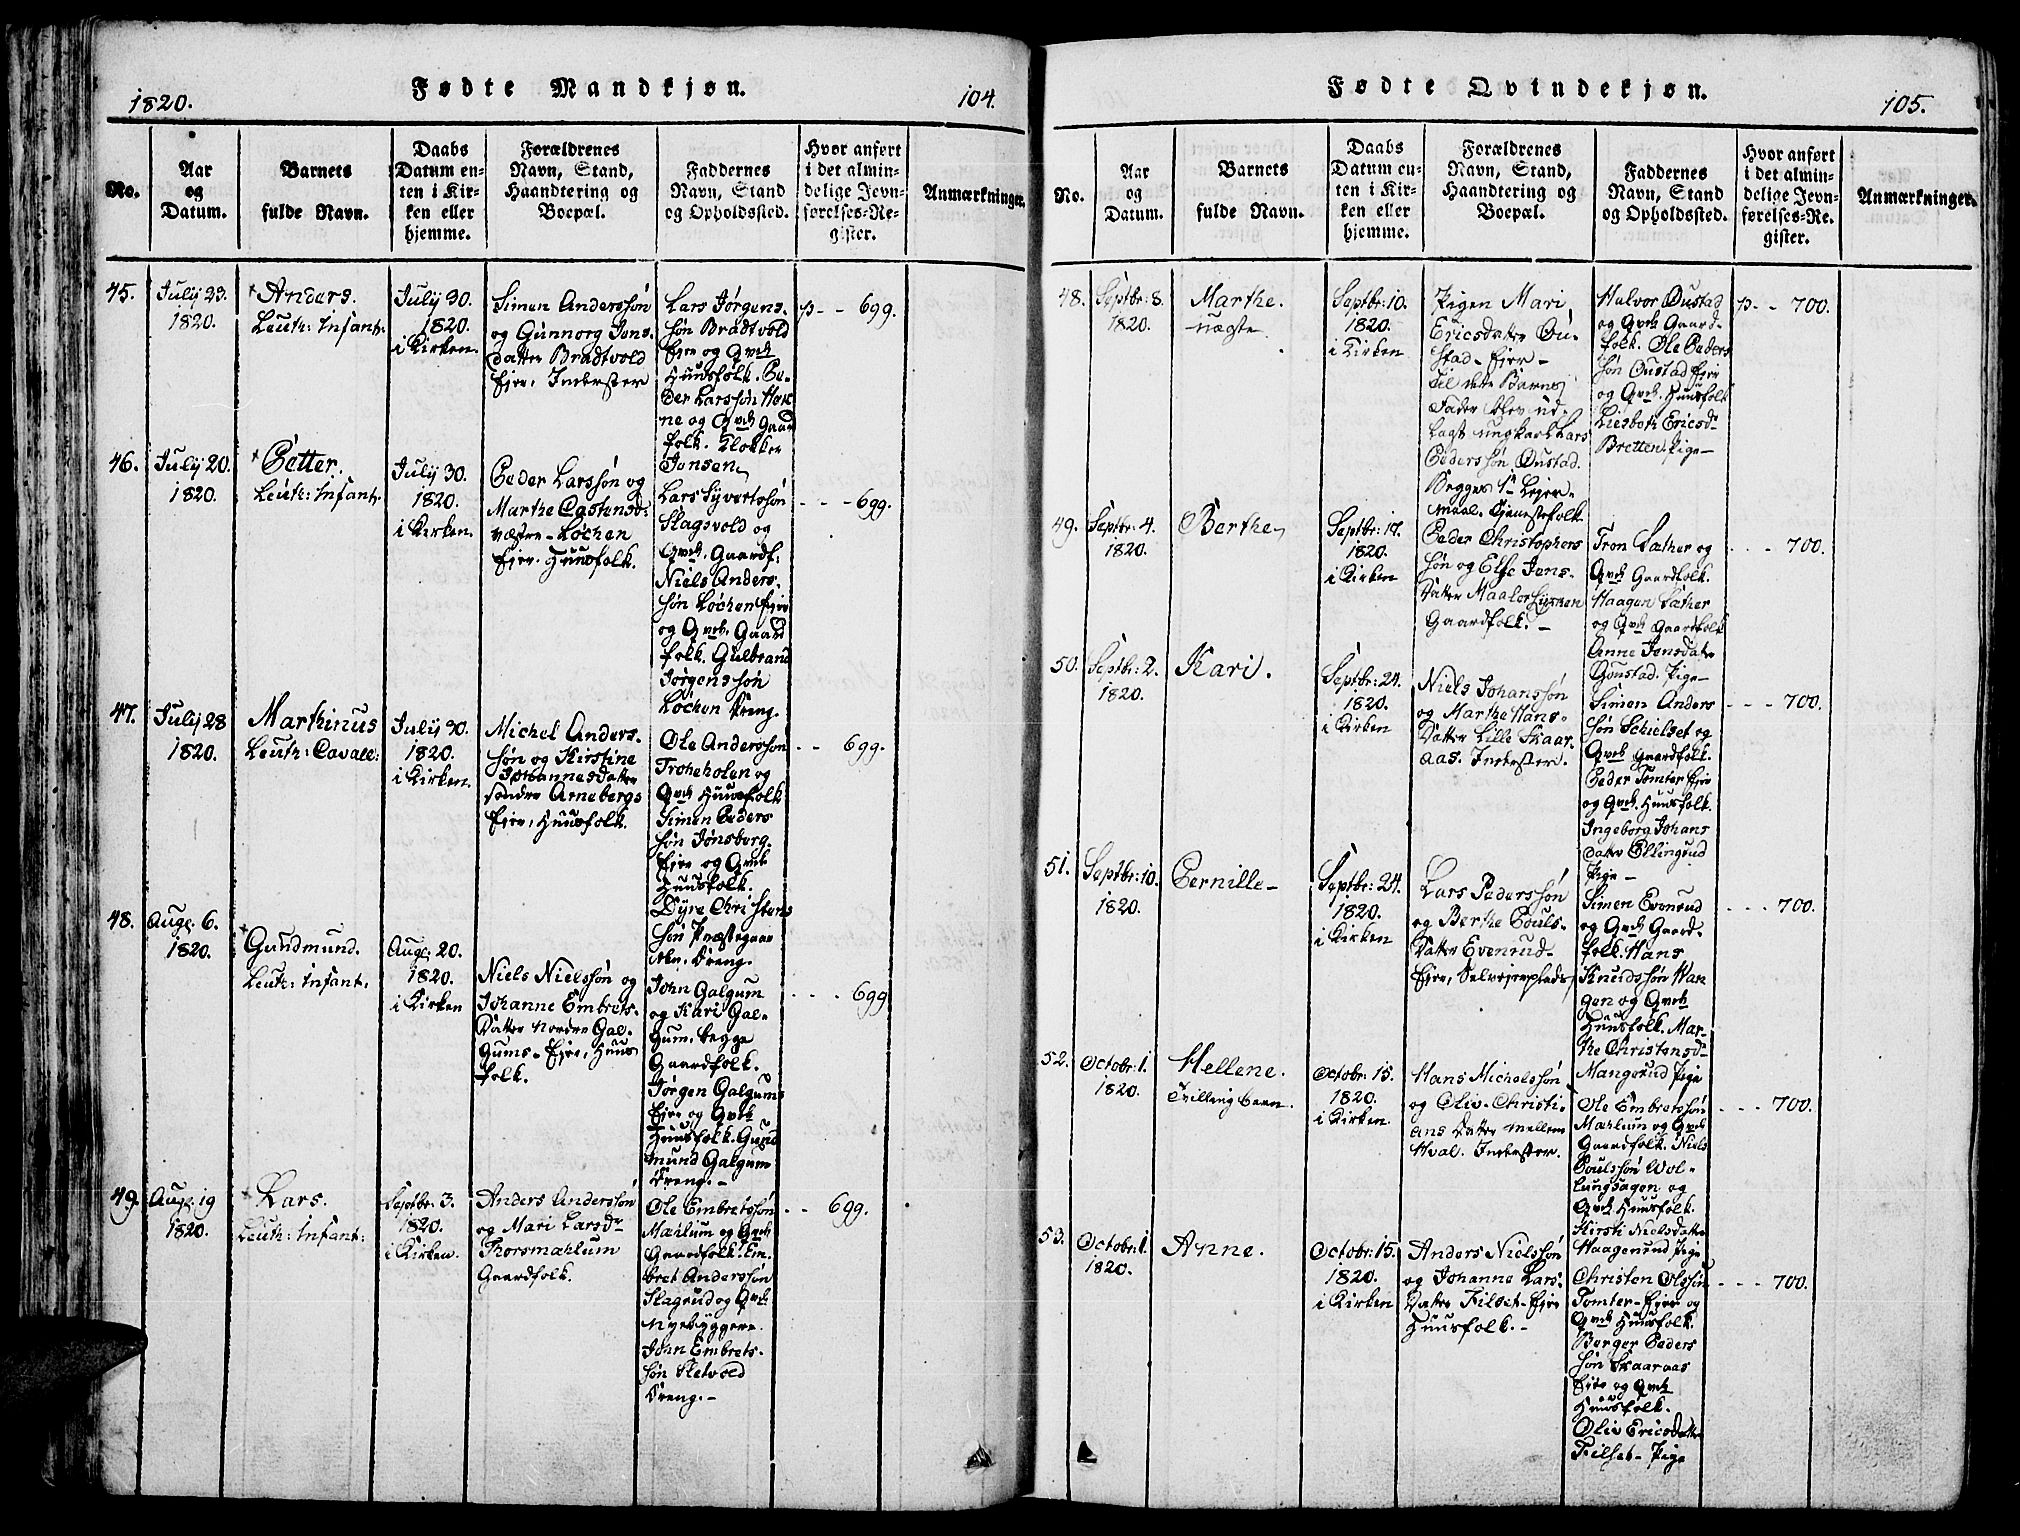 1820.
Fødte Mandkjøn.
104.
No.
Aar
og
Datum.
Barnets
fulde Navn.
Daabs
Datum en-
ten i Kir-
ken eller
hjemme.
Forældrenes
Navn, Stand,
Haandtering og
Boepæl.
Faddernes
Navn, Stand
og Opholdssted.
Hvor anført
i det almin-
delige Jevn-
førelses-Re-
gister.
Anmærkninger.
45.
July 23.
1820.
Anders.
Leutn: Infant:
July 30.
1820.
i Kirken.
Simen Anderssøn
og Gunnorg Jons
datter Bradtvold
Eje, Inderster
Lars Jørgens
søn Bradtvold
Eje og Qvck
Huusfolk. Pe-
der Larssøn Hok
ne og Qvck Gaard
folk. Klokker
Jonsen
p - - 699.
46.
July 20.
1820.
Petter.
Leutn: Infant.
July 30.
1820.
i Kirken.
Peder Larssøn og
Marthe Castensd:
væstre Løchen
Eje. Huusfolk.
Lars Syvertssøn
Slagsvold og
Qvck. Gaardf.
Niels Anders-
søn Løchen Eje
og Qvck. Gaard
folk. Gulbrand
Jørgenssøn
Løchen Dreng.
- - - 699.
47.
July 28
1820.
Marthinus
Leutn: Cavall:
July 30.
1820.
i Kirken.
Michel Anders-
søn og Kirstine
Johannesdatter
søndre Arnebergs
Eje, Huusfolk.
Ole Anderssøn
Troheholen og
Qvck Huusfolk
Simen Peders
søn Jønsberg
Eje og Qvck
Huusfolk.
Dyre Christens
søn Præstegaar
den, Dreng.
- - 699.
48.
Aug: 6.
1820.
Gundmund.
Leutn: Infant.
Aug: 20.
1820.
i Kirken
Niels Nielssøn og
Johanne Embrets-
datter Nordre Gal-
gums Eje, Huus
folk.
John Galgum
og Kari Gal-
gum, begge
Gaardfolk.
Jørgen Galgums
Eje og Qvck
Huusfolk. Gund
mund Galgum
Dreng. -
- - - 699
49.
Aug: 19
1820.
Lars.
Leutn: Infant:
Septbr. 3.
1820.
i Kirken.
Anders Anderssøn
og Mari Larsdr
Thorsmæhlum
Gaardfolk.
Ole Embretssøn
Mæhlum og Qvck
Gaardfolk. Em-
bret Anderssøn
Slagrud og Qvck
Nyebyggere.
John Embrets-
søn Sletvold
Dreng. -
- - 699.
Fødte Qvindekjøn.
105.
No.
Aar
og
Datum.
Barnets
fulde Navn.
Daabs
Datum en-
ten i Kir-
ken eller
hjemme.
Forældrenes
Navn, Stand,
Haandtering og
Boepæl.
Faddernes
Navn, Stand
og Opholdssted.
Hvor anført
i det almin-
delige Jevn-
førelses-Re-
gister.
Anmærkninger.
48.
Septbr: 8.
1820.
Marthe.
uægte
Septbr: 10.
1820.
i Kirken
Pigen Mari
Ericsdatter Ou-
stad - Eje -
Til dette Barns
Fader blev ud-
lagt ungkarl Lars
Pederssøn Oustad.
Begges 1ste Leyer-
maal. Tjenestefolk.
Halvor Oustad
og Qvck Gaard-
folk. Ole Peders
søn Oustad Eje
og Qvck. Huusfolk
Liesbeth Ericsdr
Bretten, Pige -
p - - 700.
49.
Septbr: 4.
1820.
Berthe
Septbr: 17.
1820.
i Kirken
Peder Christophers
søn og Else Jens-
datter
Gaardfolk. -
Tron Sæther og
Qvck Gaardfolk.
Haagen Sæther
og Qvck Gaardfolk
Anne Jonsdatr
Goustad. Pige -
- - - 700.
50.
Septbr: 2.
1820.
Kari.
Septbr: 24.
1820.
i Kirken
Niels Johanssøn
og Marthe Hans-
datter Lille Skaar-
aas. Inderster.
Simen Anders
søn Schielset og
Qvck Gaardfolk.
Peder Tomter Eje
og Qvck. Huusfolk.
Ingeborg Johans
datter Ellingsrud
Pige -
- - - 700.
51.
Septbr: 10.
1820.
Pernille -
Septbr: 24.
1820.
i Kirken
Lars Pederssøn
og Berthe Pouls-
datter Evensrud -
Eje, Selvejerplads
Simen Evensrud
og Qvck Gaard-
folk. Hans
Knudssøn Han
gen og Qvck
Huusfolk. Mar-
the Christensd-
Mangsrud Pige
- - - 700.
52.
Octobr: 1.
1820.
Hellene.
Tvilling barn.
Octobr: 15.
1820.
i Kirken.
Hans Michelssøn
og Oliv. Christi-
ans datter mellem
Hval. Inderster.
Ole Embretssøn
Mæhlum og Qvck
Gaardfolk. Niels
Poulssøn Wol-
lungsagen og
Qvck Huusfolk.
Kirsti Nielsdatter
Haagensrud Pige
- - - 700.
53.
Octobr: 1.
1820.
Anne.
Octobr: 15.
1820.
i Kirken
Anders Nielssøn
og Johanne Lars-
datter Filset - Eje
Huusfolk. -
Christen Olssøn
Tomter - Eje og
Qvck Huusfolk.
Børger Peders
søn Skaaraas
Eje og Qvck
Huusfolk.
Oliv Ericsdatter
Filset - Pige
- - - 700.